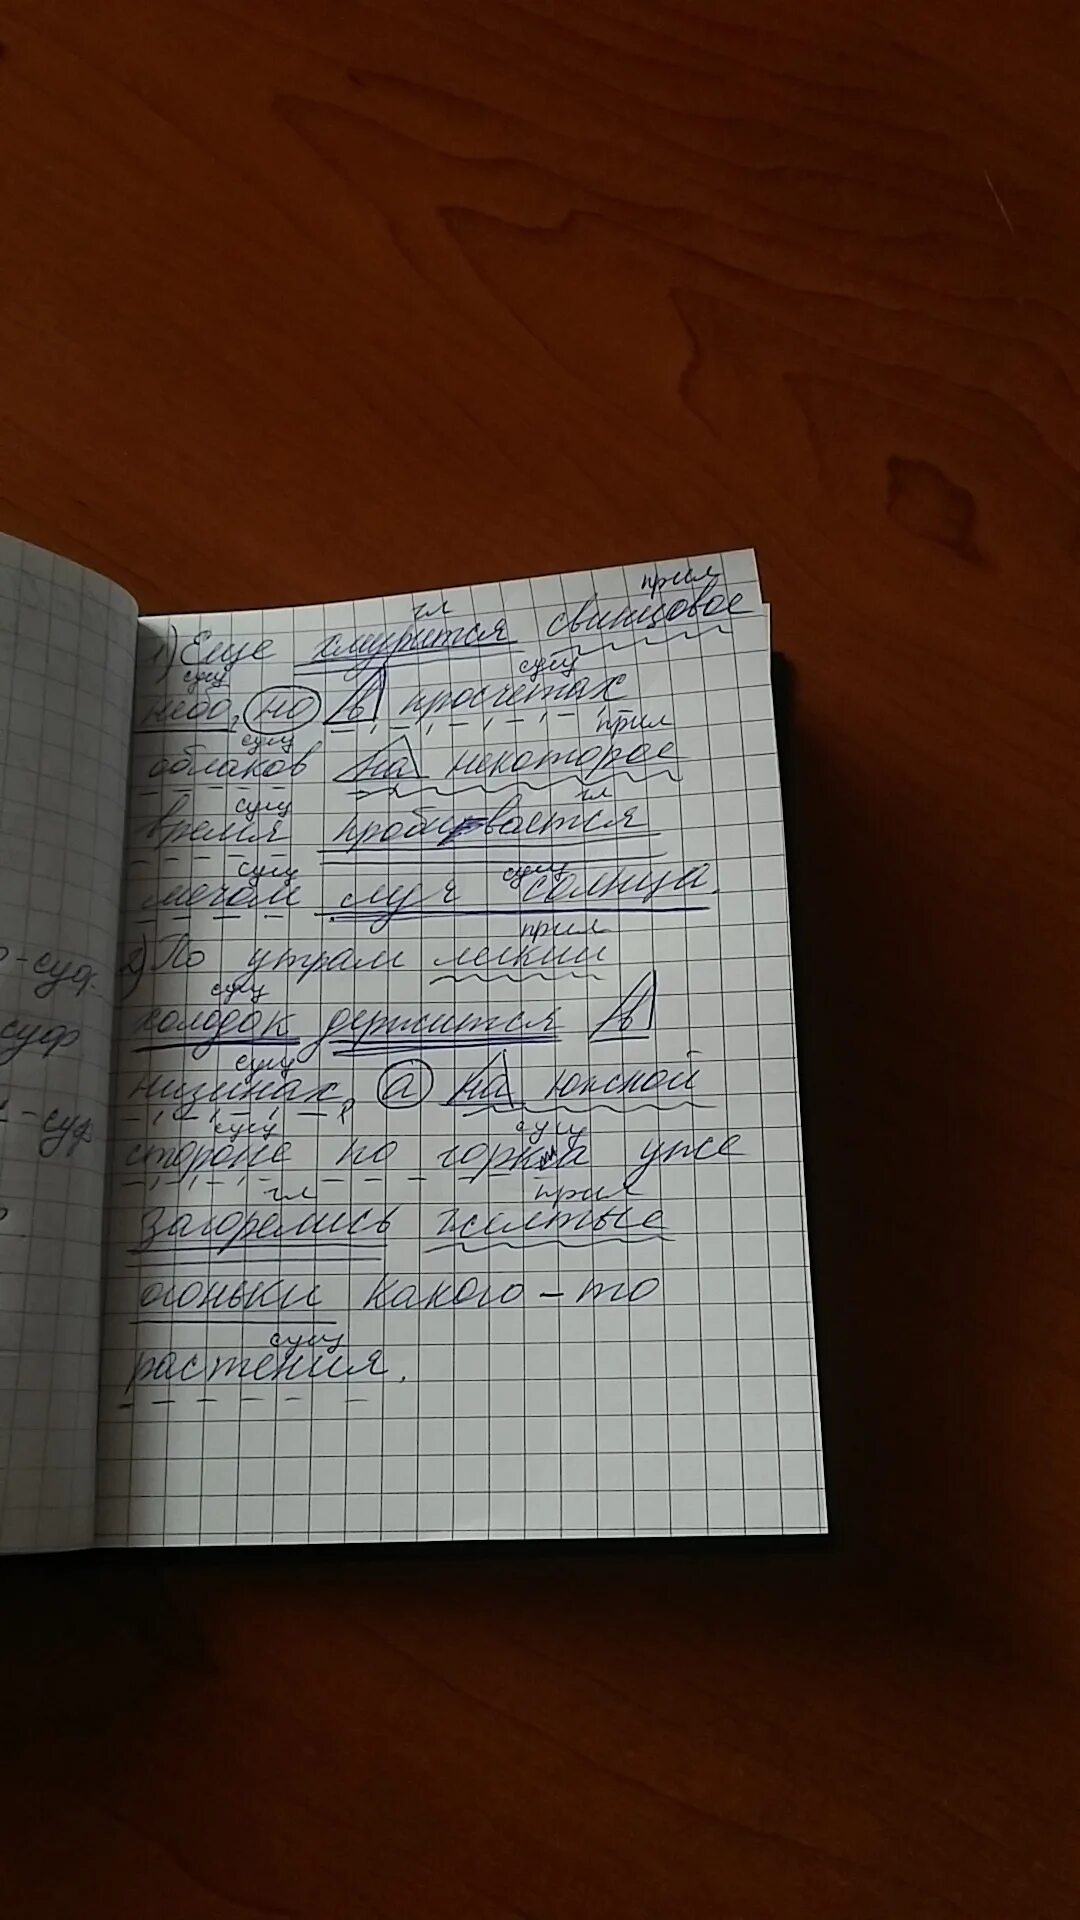 гл прил
1) Еще хмурится свинцовое
сущ сущ
небо, но в просчетах
сущ прил
облаков на некоторое
сущ гл
время пробивается
сущ сущ
мечом луч солнца.
прил
2) По утрам легкий
сущ
холодок держится в
сущ
низинах, а на южной
сущ сущ
стороне по горка уже
гл прил
загорелись желтые
огоньки какого-то
сущ
растения.
-суф.
суф
-суф